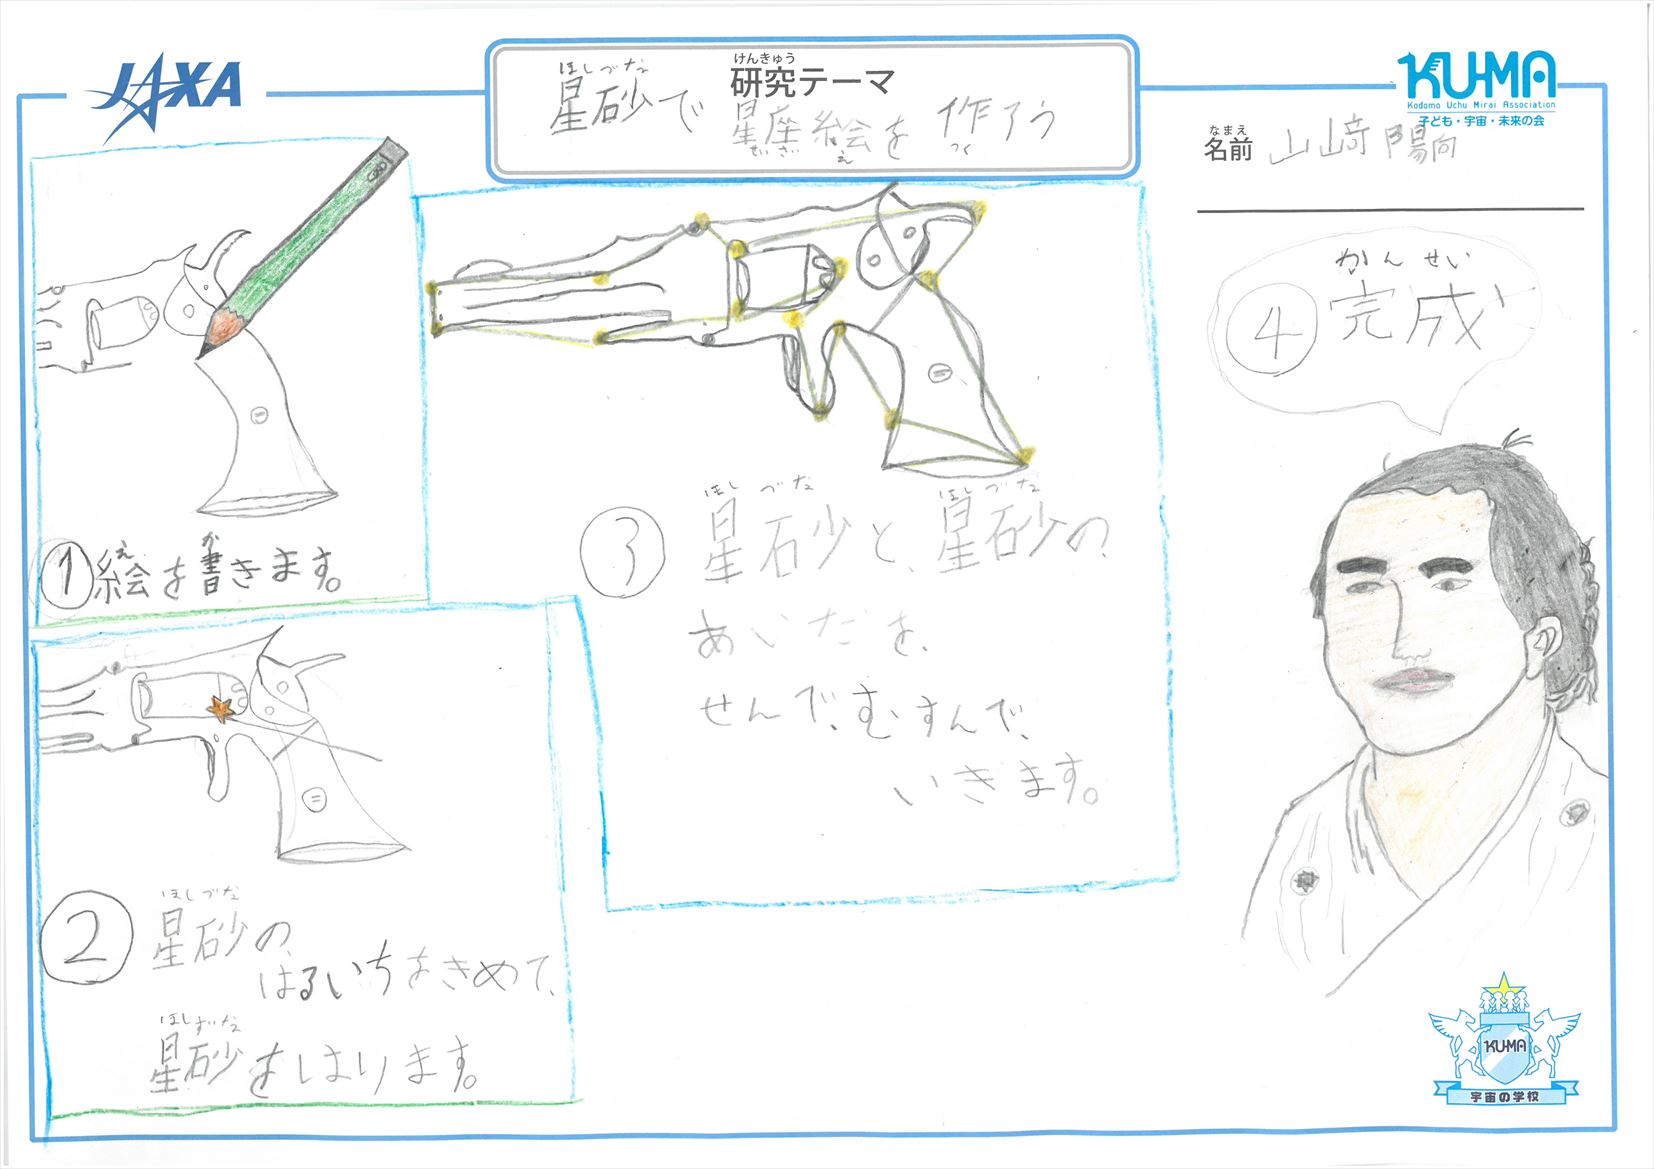 JAXA
けんきゅう
研究テーマ
ほしづな
星砂で星座絵を作ろう
せいざ え つく
KU-MA
Kodomo Uchu Mirai Association
子ども・宇宙・未来の会
なまえ
名前 山崎陽向
え か
①絵を書きます。
ほしづな
②星砂の、
はるいちをきめて、
ほしずな
星砂をはります。
ほしづな ほしづな
③星砂と、星砂の
あいだを、
せんで、むすんで、
いきます。
かんせい
④完成
KU-MA
宇宙の学校